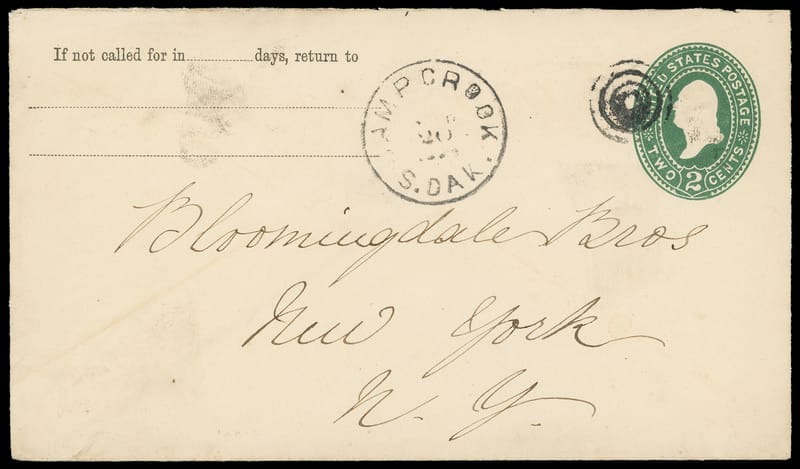 If not called for in............days, return to
AMP CROOK
20
S. DAK.
D STATES POSTAGE
TWO 2 CENTS
Bloomingdale Bros
New York
N. Y.